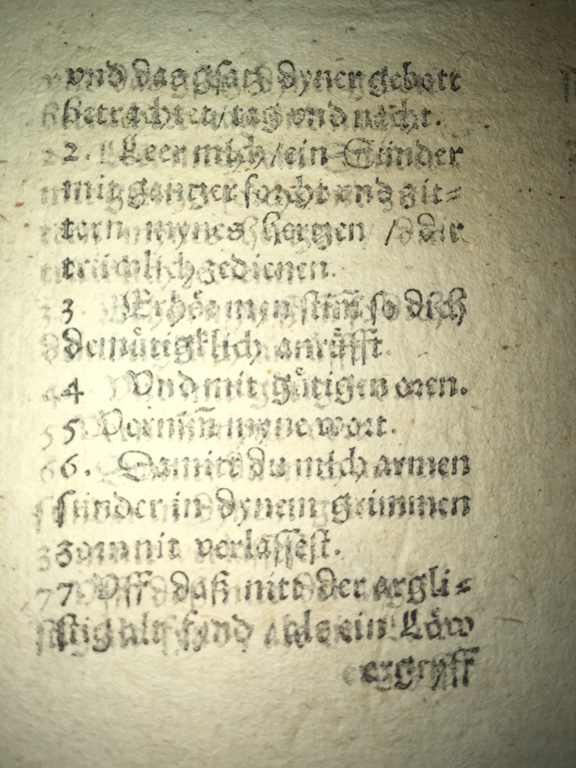 vnd das gsatz dyner gebott
betrachtet / tag vnd nacht.
2. Leer mich / ein Sünder
mit gantzer forcht vnd zit-
tern mynes hertzen / dir
trüwlich zedienen.
3 Erhör myn stim̄ so dich
demütigklich anrüfft.
4 Vnd mit gütigen oren.
5 Vernim̄ myne wort.
6. Damitt du mich armen
sünder in dynem grimmen
zorn nit verlassest.
7 Vff daß nitt der argli-
stig alt fynd / als ein Löw
ergryff